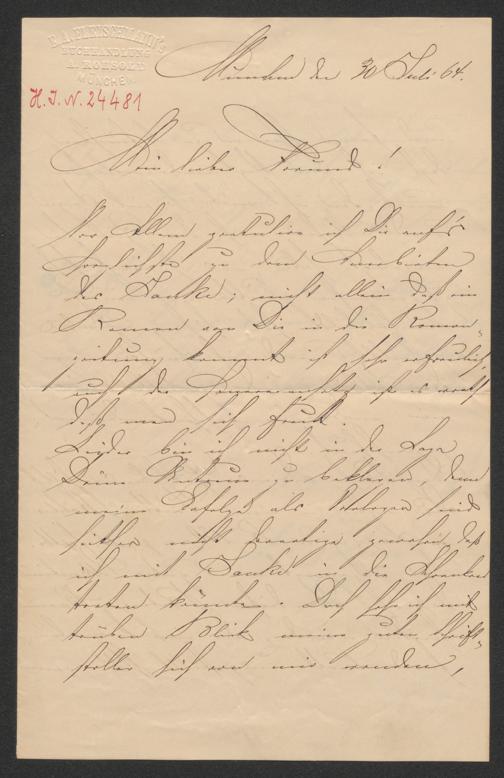 E. A. FLEISCHMANN'S
BUCHHANDLUNG
A. ROHSOLD
MÜNCHEN
H. I. N. 24481
München den 30 Juli 64.
Mein lieber Freund!
Vor Allem gratulire ich Dir auf's
herzlichste zu dem Anerbieten
des Janke; nicht allein daß ein
Roman von Dir in die Roman-
zeitung kommt ist sehr erfreulich,
auch der ist es werth
daß man sich freut.
Leider bin ich nicht in der Lage
Deine zu beklagen, denn
meine Erfolge als Verleger sind
seither nicht derartige gewesen, daß
ich mit Janke in die Schranken
treten könnte. Doch sehe ich mit
trüben Blick meine guten Schrift-
steller sich von mir wenden,